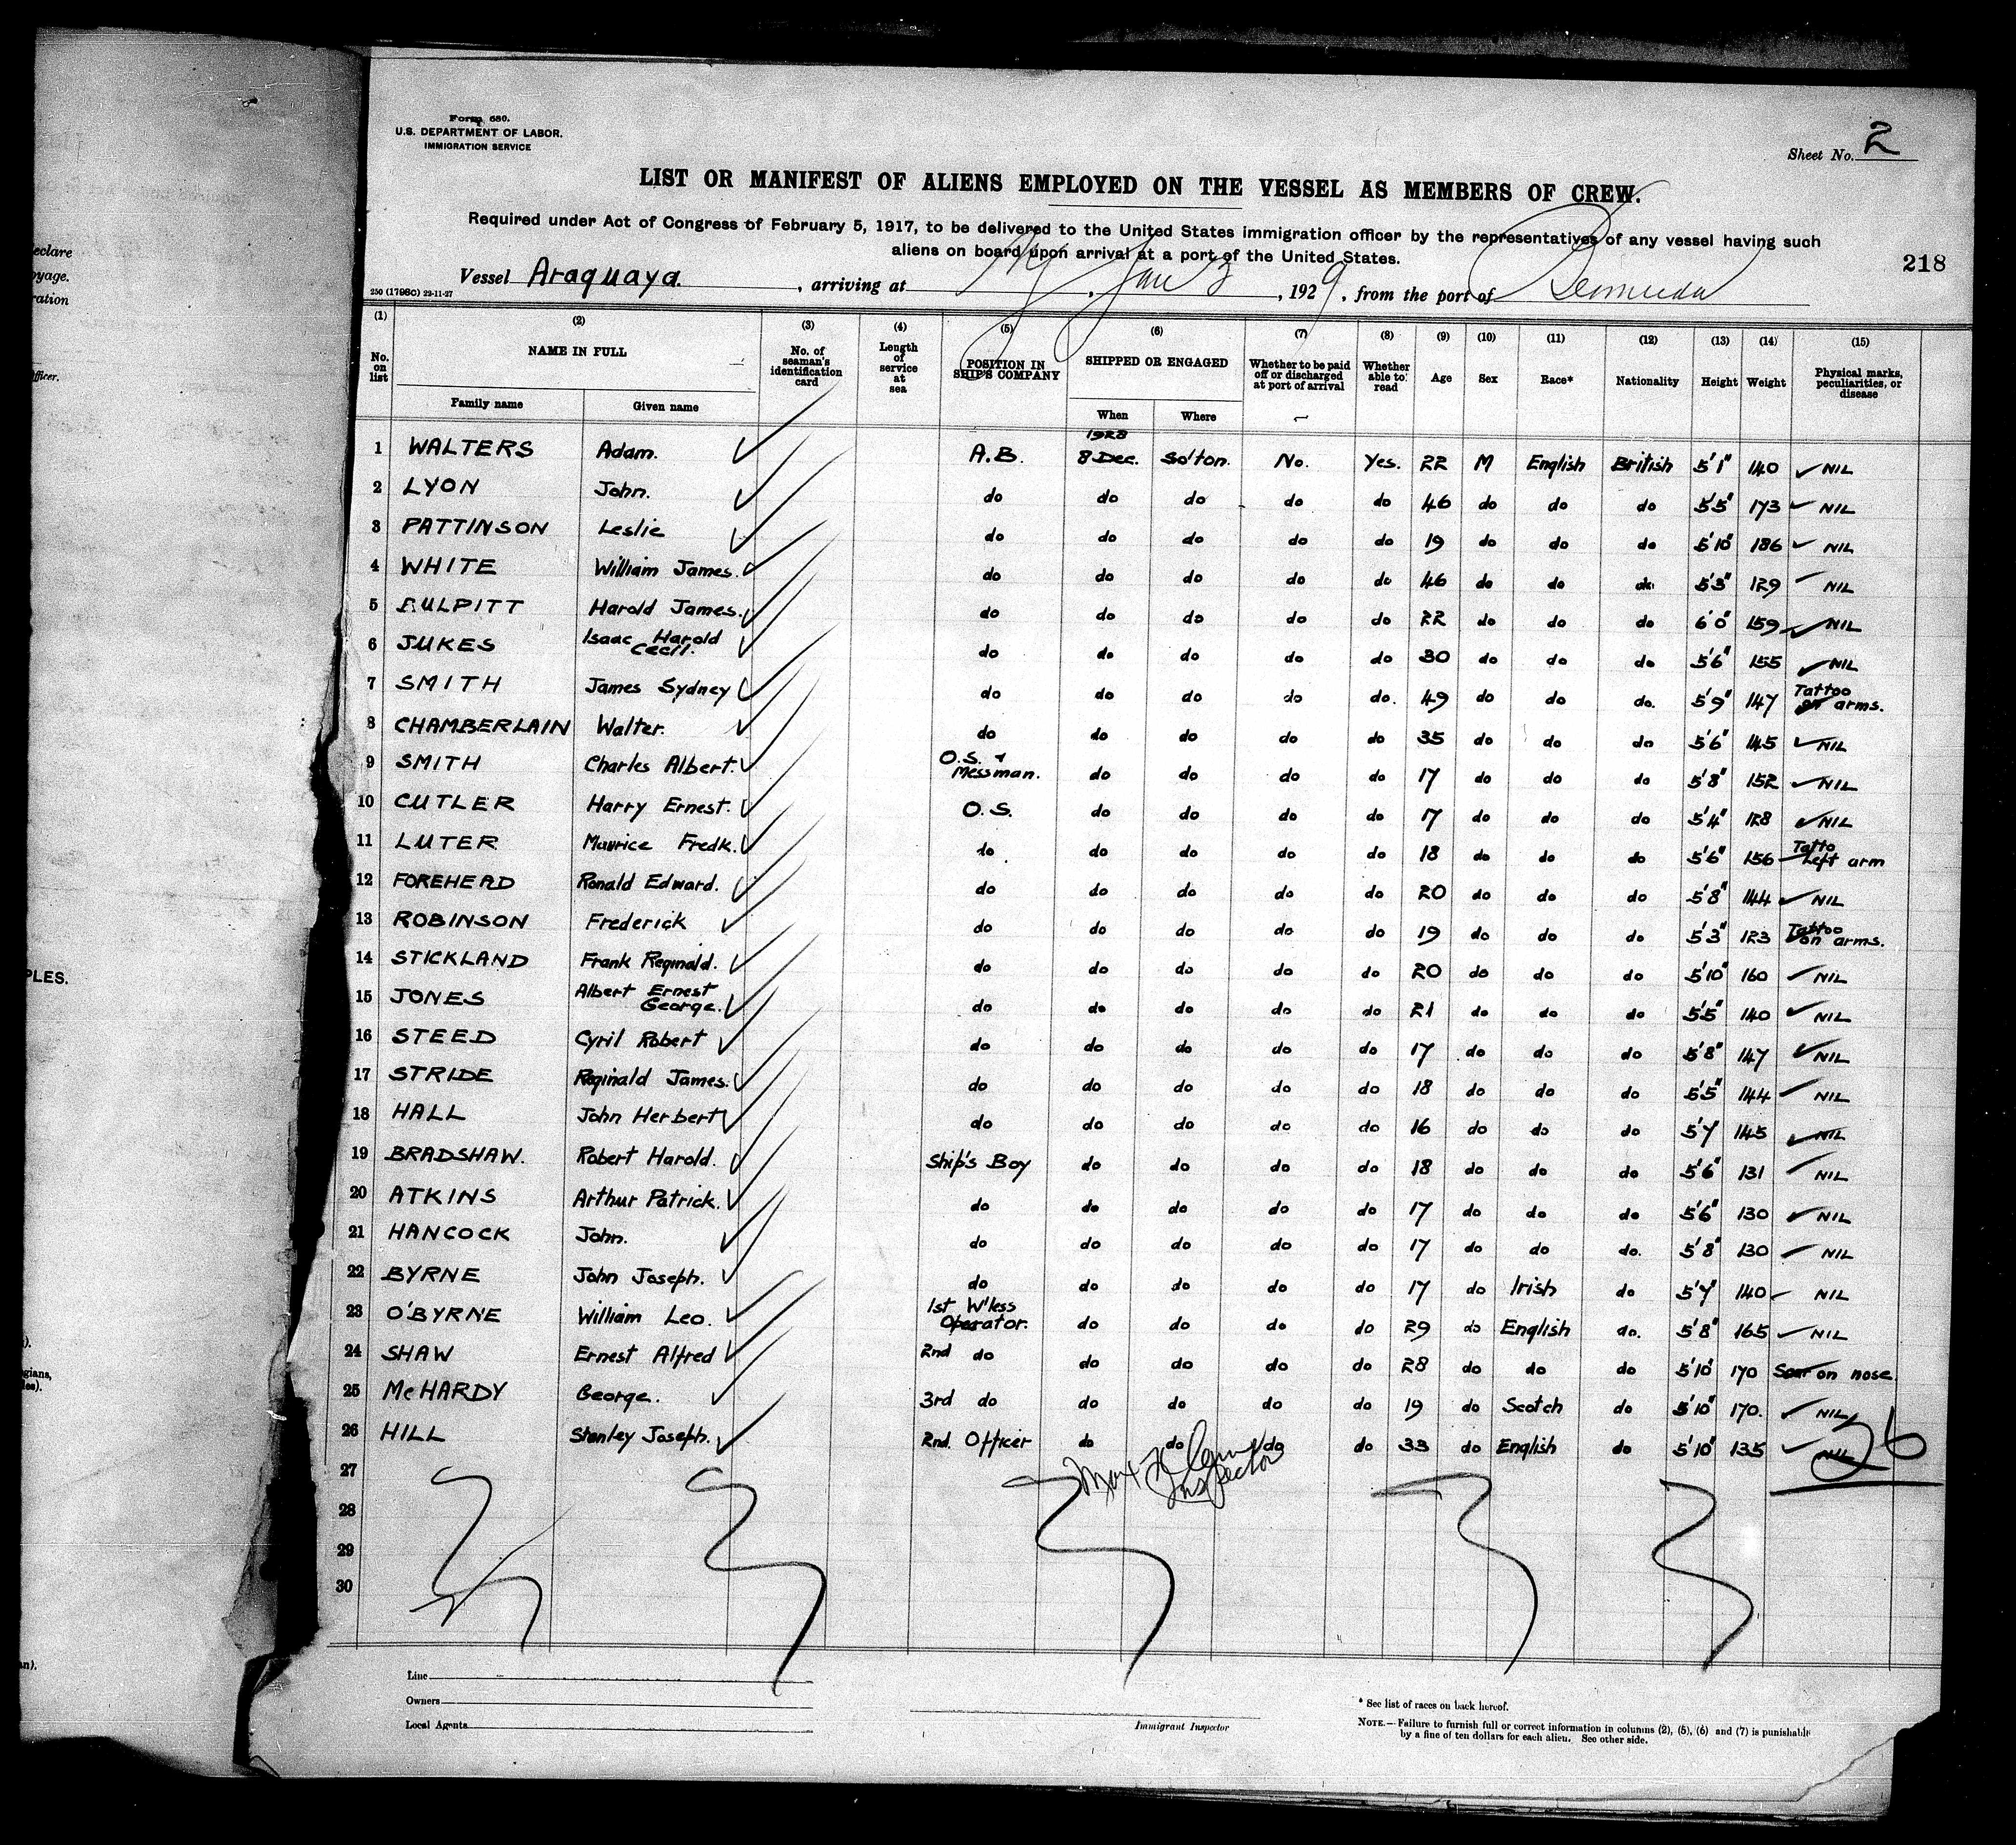 eclare
oyage.
ration
officer.
PLES.
).
gians,
les).
an).
Form 680.
U.S. DEPARTMENT OF LABOR.
IMMIGRATION SERVICE
Sheet No. 2
LIST OR MANIFEST OF ALIENS EMPLOYED ON THE VESSEL AS MEMBERS OF CREW.
Required under Act of Congress of February 5, 1917, to be delivered to the United States immigration officer by the representatives of any vessel having such
aliens on board upon arrival at a port of the United States.
218
Vessel Araguaya. , arriving at NY , Jan 3 , 1929 , from the port of Bermuda
250 (1798c) 22-11-27
(1) (2) (3) (4) (5) (6) (7) (8) (9) (10) (11) (12) (13) (14) (15)
No. on list NAME IN FULL No. of seaman's identification card Length of service at sea POSITION IN SHIP'S COMPANY SHIPPED OR ENGAGED Whether to be paid off or discharged at port of arrival Whether able to read Age Sex Race* Nationality Height Weight Physical marks, peculiarities, or disease
Family name Given name When Where
1928
1 WALTERS Adam. A.B. 8 Dec. So'ton. No. Yes. 22 M English British 5'1" 140 NIL
2 LYON John. do do do do do 46 do do do 5'5" 173 NIL
3 PATTINSON Leslie do do do do do 19 do do do 5'10" 186 NIL
4 WHITE William James. do do do do do 46 do do do 5'3" 129 NIL
5 BULPITT Harold James. do do do do do 22 do do do 6'0" 159 NIL
6 JUKES Isaac Harold Cecil. do do do do do 30 do do do 5'6" 155 NIL
7 SMITH James Sydney do do do do do. 49 do do do. 5'9" 147 Tattoo on arms.
8 CHAMBERLAIN Walter. do do do do do 35 do do do 5'6" 145 NIL
9 SMITH Charles Albert. O.S. + Messman. do do do do 17 do do do 5'8" 152 NIL
10 CUTLER Harry Ernest. O.S. do do do do 17 do do do 5'4" 128 NIL
11 LUTER Maurice Fredk. do do do do do 18 do do do 5'6" 156 Tatto Left arm
12 FOREHEAD Ronald Edward. do do do do do 20 do do do 5'8" 144 NIL
13 ROBINSON Frederick do do do do do 19 do do do 5'3" 123 Tattoo on arms.
14 STICKLAND Frank Reginald. do do do do do 20 do do do 5'10" 160 NIL
15 JONES Albert Ernest George. do do do do do 21 do do do 5'5" 140 NIL
16 STEED Cyril Robert do do do do do 17 do do do 5'8" 147 NIL
17 STRIDE Reginald James. do do do do do 18 do do do 5'5" 144 NIL
18 HALL John Herbert do do do do do 16 do do do 5'7" 145 NIL
19 BRADSHAW. Robert Harold. Ship's Boy do do do do 18 do do do 5'6" 131 NIL
20 ATKINS Arthur Patrick. do do do do do 17 do do do 5'6" 130 NIL
21 HANCOCK John. do do do do do 17 do do do. 5'8" 130 NIL
22 BYRNE John Joseph. do do do do do 17 do Irish do 5'7" 140 NIL
23 O'BYRNE William Leo. 1st W'less Operator. do do do do 29 do English do. 5'8" 165 NIL
24 SHAW Ernest Alfred 2nd do do do do do 28 do do do 5'10" 170 Scar on nose.
25 McHARDY George. 3rd do do do do do 19 do Scotch do 5'10" 170. NIL
26 HILL Stanley Joseph. 2nd. Officer do do do do 33 do English do 5'10" 135 NIL
26
27
Inspector
28
29
30
Line
Owners
Local Agents
Immigrant Inspector
* See list of races on back hereof.
NOTE.—Failure to furnish full or correct information in columns (2), (5), (6) and (7) is punishable
by a fine of ten dollars for each alien. See other side.